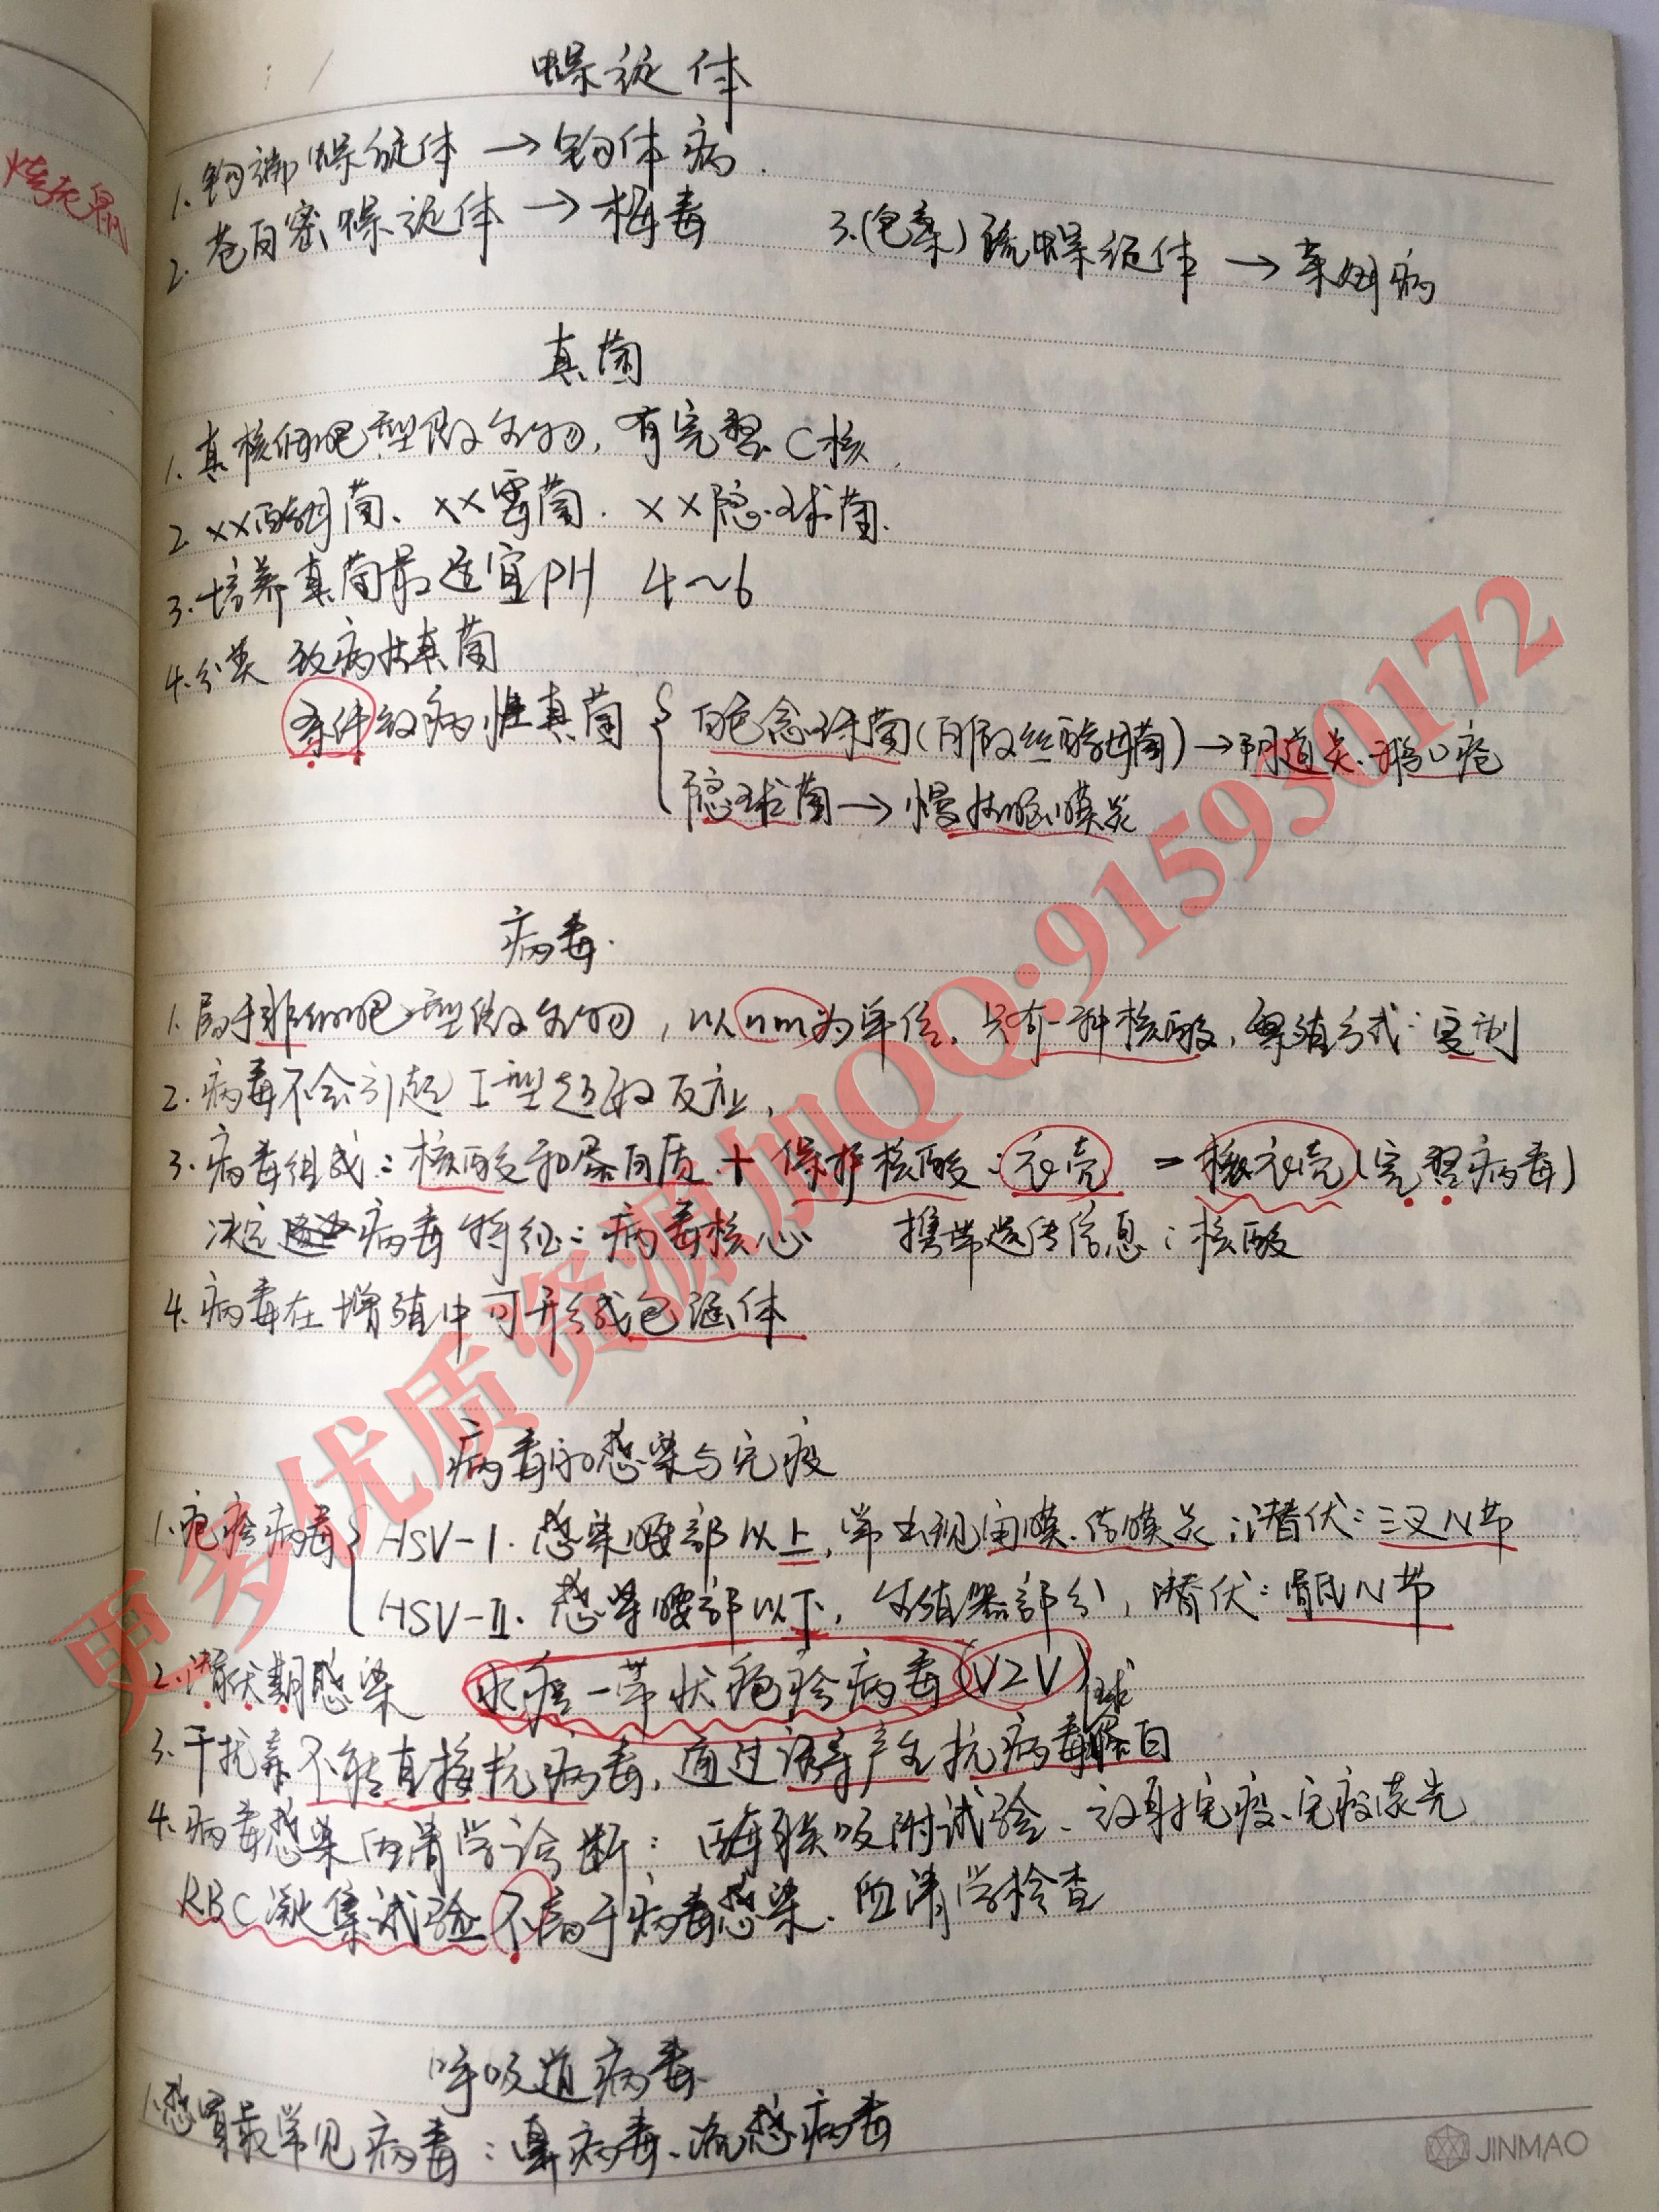 螺旋体
1. 钩端螺旋体 → 钩体病.
2. 苍白密螺旋体 → 梅毒
3.(包柔)疏螺旋体 → 莱姆病
真菌
1. 真核细胞型微生物, 有完整C核.
2. XX酵母菌、XX霉菌. XX隐球菌.
3. 培养真菌最适宜PH 4~6
4. 分类 致病性真菌
条件致病性真菌 { 白色念球菌(白假丝酵母菌) → 阴道炎、鹅口疮
隐球菌 → 慢性脑膜炎
病毒.
1. 属于非细胞型微生物, 以nm为单位. 只有一种核酸, 繁殖方式: 复制
2. 病毒不会引起 I型超敏反应,
3. 病毒组成: 核酸和蛋白质 + 保护核酸: 衣壳 = 核衣壳(完整病毒)
决定病毒特征: 病毒核心 携带遗传信息: 核酸
4. 病毒在增殖中可形成包涵体
病毒的感染与免疫
1. 疱疹病毒 { HSV-I. 感染腰部以上, 常出现角膜、结膜炎; 潜伏: 三叉N节
HSV-II. 感染腰部以下, 生殖器部分, 潜伏: 骶N节
2. 潜伏期感染 水痘-带状疱疹病毒(VZV)
3. 干扰素不能直接抗病毒, 通过诱导产生抗病毒蛋白
4. 病毒感染血清学诊断: 酶联吸附试验、放射免疫、免疫荧光
RBC凝集试验不属于病毒感染. 血清学检查
呼吸道病毒
1. 感冒最常见病毒: 鼻病毒、流感病毒
JINMAO
更多优质资源加QQ:915930172